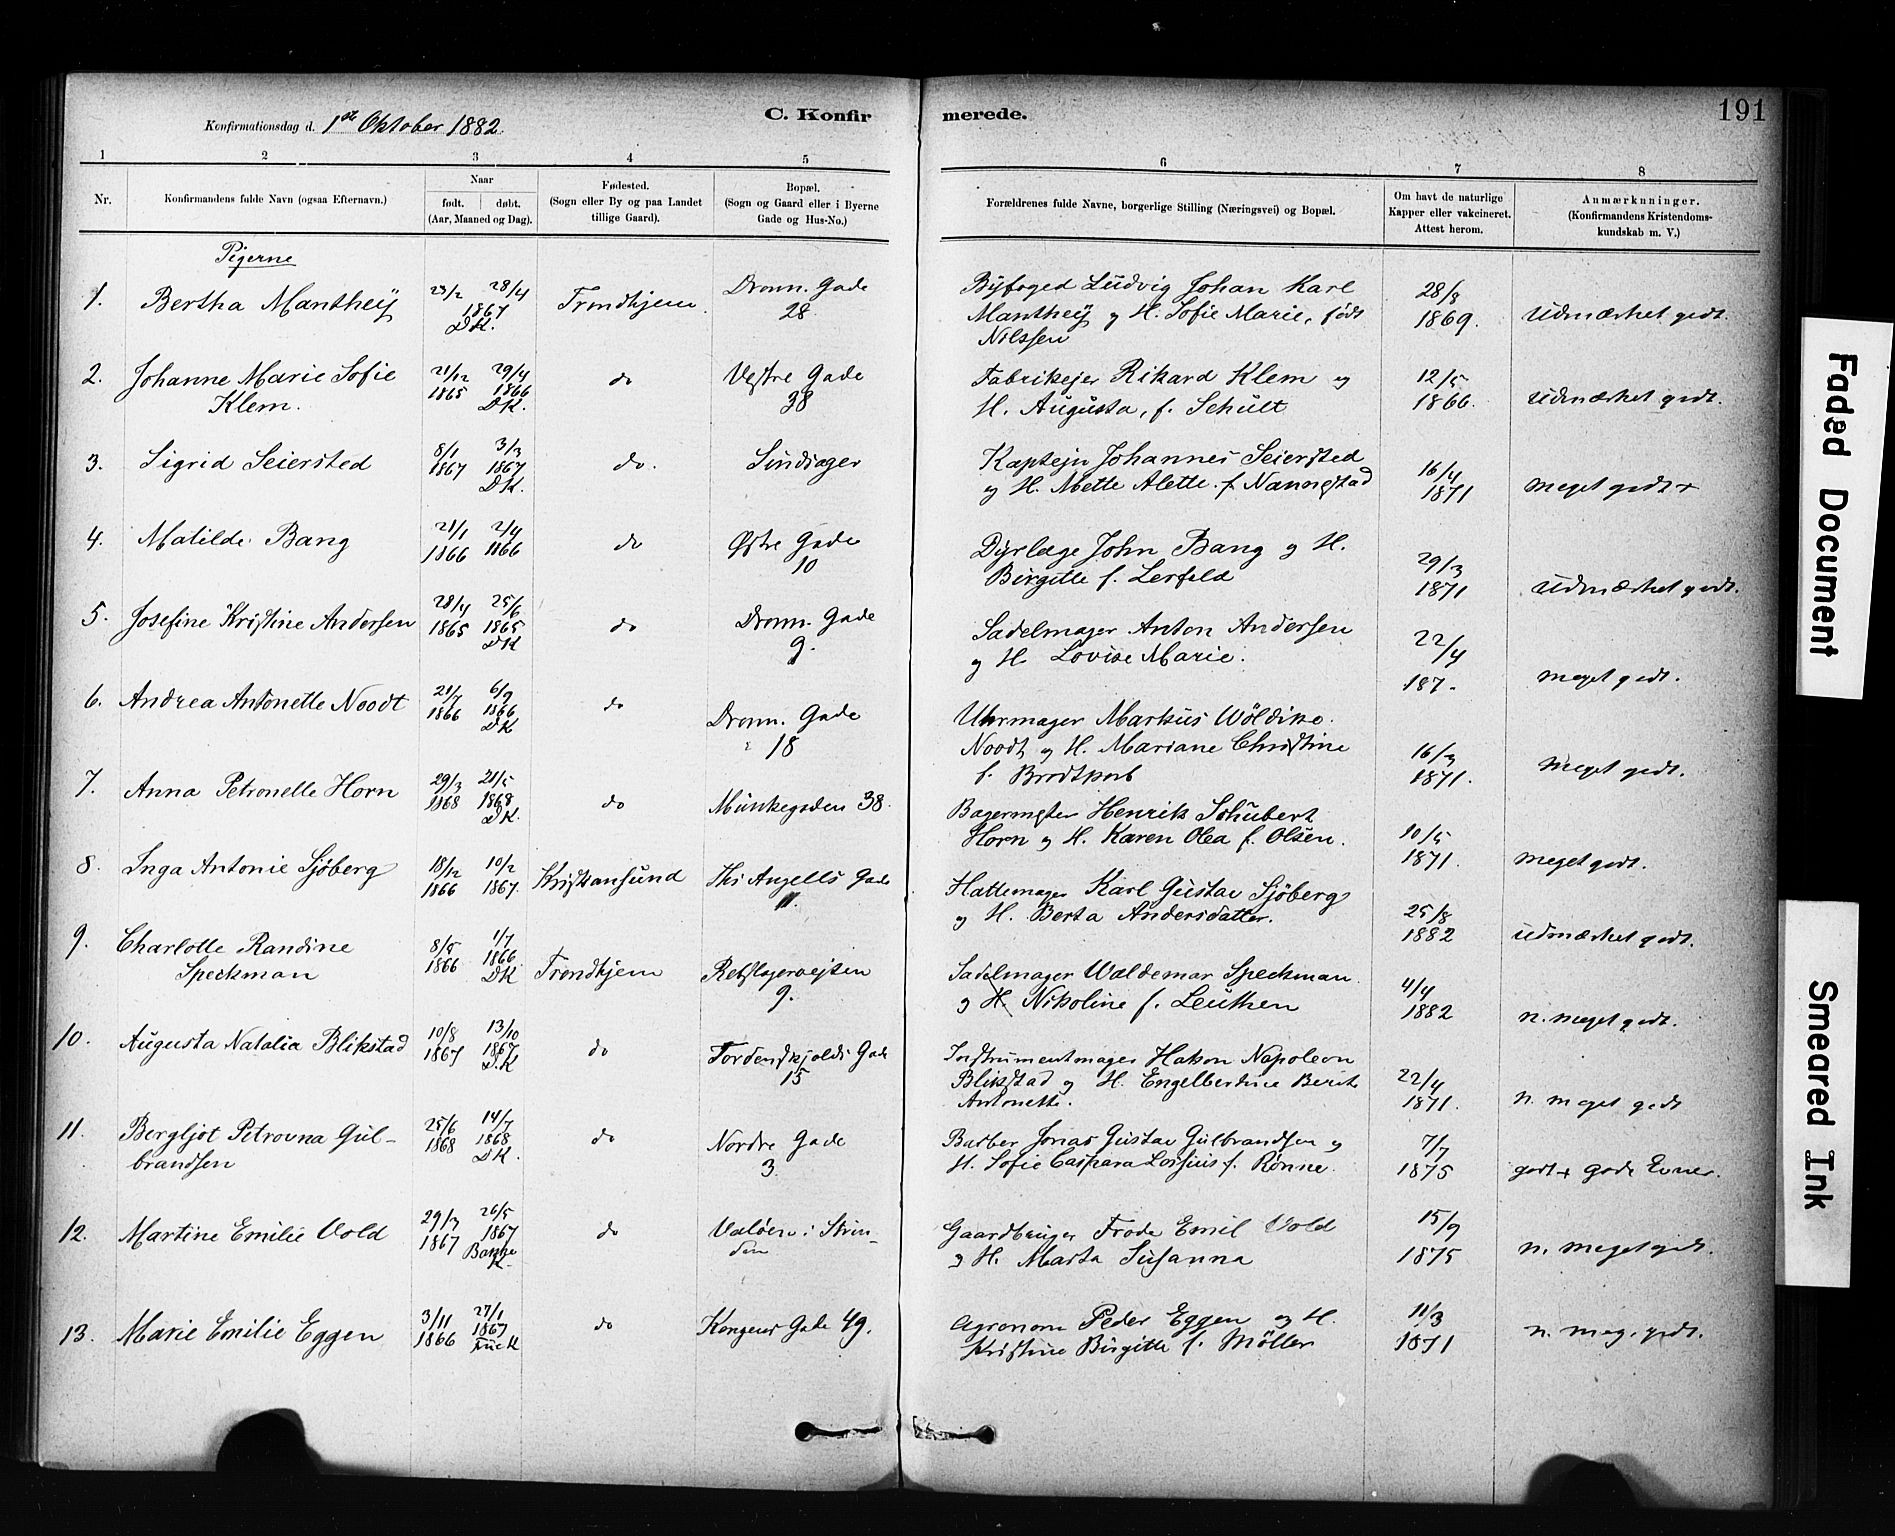 C. Konfirmerede.
191
Konfirmationsdag d. 1ste Oktober 1882.
1 2 3 4 5 6 7 8
Nr.
Konfirmandens fulde Navn (ogsaa Efternavn.)
Naar
født. døbt.
(Aar, Maaned og Dag).
Fødested.
(Sogn eller By og paa Landet
tillige Gaard).
Bopæl.
(Sogn og Gaard eller i Byerne
Gade og Hus-No.)
Forældrenes fulde Navne, borgerlige Stilling (Næringsvei) og Bopæl.
Om havt de naturlige
Kapper eller vakcineret.
Attest herom.
Anmærkninger.
(Konfirmandens Kristendoms-
kundskab m. V.)
Pigerne
1. Bertha Manthey 23/2 28/4 1867 D.K. Trondhjem. Dronn. Gade 28
Byfoged Ludvig Johan Karl
Manthey og H. Sofie Marie, født
Nilssen
28/8 1869. udmærket godt.
2. Johanne Marie Sofie
Klem.
21/12 1865 29/4 1866 DK. do Vestre Gade 38
Fabrikejer Rikard Klem og
H. Augusta, f. Schult
12/5 1866. udmærket godt.
3. Sigrid Seiersted 8/1 1867 3/3 1867 DK. do.
Kaptejn Johannes Seiersted
og H. Mette Alette f. Nannestad
16/4 1871 meget godt +
4. Matilde Bang 21/1 1866 2/4 1866 do Østre Gade 10
Dyrlæge John Bang og H.
Birgitte f. Lerfald
29/3 1871 udmærket godt.
5. Josefine Kristine Andersen 28/4 1865 25/6 1865 DK do Dronn. Gade 9.
Sadelmager Anton Andersen
og H. Lovise Marie.
22/4 187. meget godt.
6. Andrea Antonette Noodt 21/7 1866 6/9 1866 DK do Dronn. Gade 18
Uhrmager Markus Wöldike
Noodt og H. Mariane Christine
f. Brodtkorb
16/3 1871. meget godt.
7. Anna Petronelle Horn 29/3 1868 21/5 1868 DK. do Munkegaden 38.
Bagermester Henrik Schubert
Horn og H. Karen Olea f. Olsen.
10/5 1871. meget godt.
8. Inga Antonie Sjöberg 18/12 1866 10/2 1867. Kristiansund Ths Angells Gade 11.
Hattemager Karl Gustav Sjöberg
og H. Berta Andersdatter.
25/8 1882 udmærket godt.
9. Charlotte Randine
Speckman
8/5 1866 1/7 1866 DK Trondhjem Rebslagerveiten 9.
Sadelmager Waldemar Speckman
og H. Nikoline f. Leuthen
4/4 1882 n. meget godt.
10. Augusta Natalia Blikstad 10/8 1867 13/10 1867 D.K do Tordenskjolds Gade 15
Instrumentmager Hakon Napoleon
Blikstad og H. Engelbertine Berit
Antonette.
22/4 1871. n. meget godt
11. Bergljot Petrovna Gul-
brandsen
25/6 1868 14/7 1868 DK. do Nordre Gade 3.
Barber Jonas Gustav Gulbrandsen og
H. Sofie Caspara Lossius f. Rønne.
7/7 1875 godt + gode Evner.
12. Martine Emilie Vold 29/3 1867 26/5 1867 Bakke K. do Valøen i Strin-
den
Gaardbruger Frode Emil Vold
og H. Marta Susanna
15/9 1875 n. meget godt.
13. Marie Emilie Eggen 3/11 1866 27/1 1867 Frue K do Kongens Gade 49.
Agronom Peder Eggen og H.
Kristine Birgitte f. Möller
11/3 1871 n. meg. godt.
Faded Document
Smeared Ink